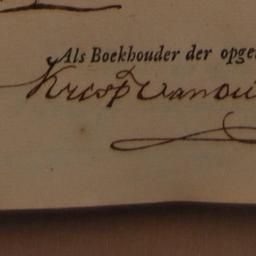 Als Boekhouder der opge
Krisp Vanou